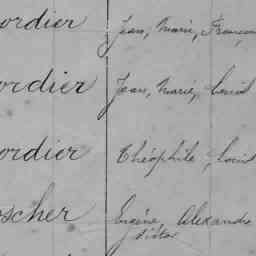 ordier Jean, Marie, François
ordier Jean, Marie, Benoit
ordier Théophile, Louis
oscher Eugène Alexandre
Victor